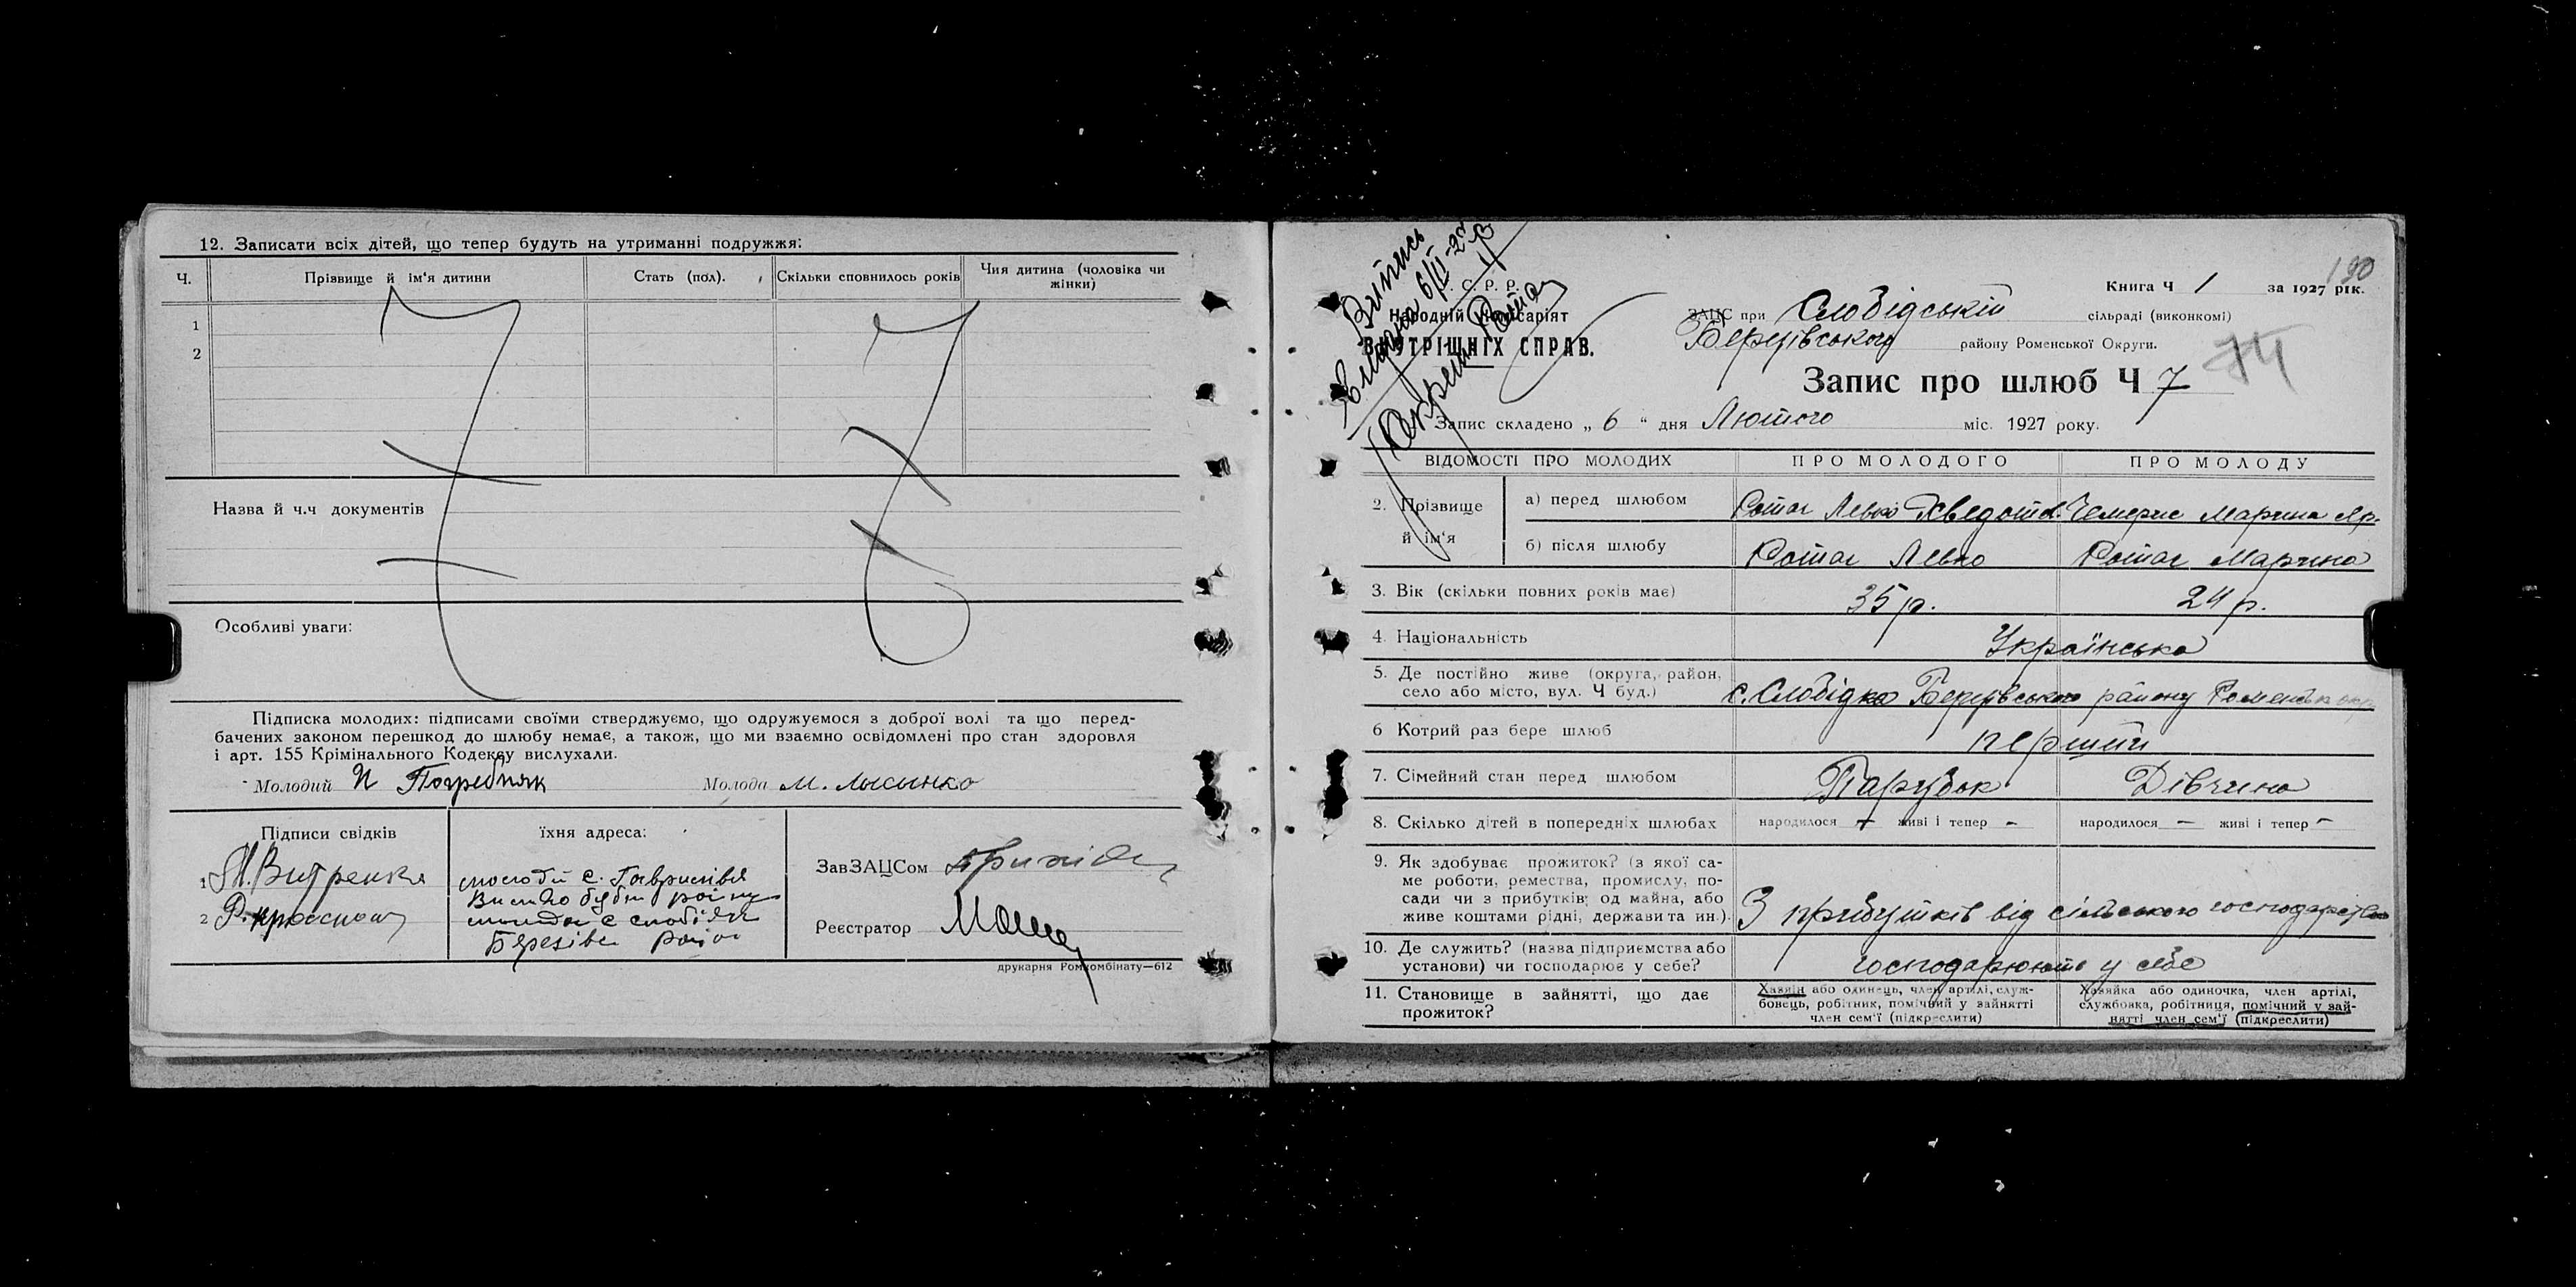 12. Записати всіх дітей, що тепер будуть на утриманні подружжя:
Ч. Прізвище й ім'я дитини Стать (пол). Скільки сповнилось років Чия дитина (чоловіка чи жінки)
1
2
Назва й ч.ч документів
Особливі уваги:
Підписка молодих: підписами своїми стверджуємо, що одружуємося з доброї волі та що перед-
бачених законом перешкод до шлюбу немає, а також, що ми взаємно освідомлені про стан здоровля
і арт. 155 Крімінального Кодексу вислухали.
Молодий П Погребняк Молода М. Лысынко
Підписи свідків їхня адреса:
1 М. Витренка молодий с.
2 Р.
Березівс
ЗавЗАЦСом
Реєстратор
друкарня Ромкомбінату—612
Випись
видана 6/II-27 р
Ротач
С. Р. Р.
Народній Комісаріят
ВНУТРІШНІХ СПРАВ.
190
Книга Ч 1 за 1927 рік.
ЗАЦС при Слобідській сільраді (виконкомі)
Березівського району Роменської Округи.
Запис про шлюб Ч 7
74
Запис складено „ 6 “ дня Лютого міс. 1927 року.
ВІДОМОСТІ ПРО МОЛОДИХ ПРО МОЛОДОГО ПРО МОЛОДУ
2. Прізвище й ім'я а) перед шлюбом Ротач Левко Хведотов. Чемерис Марина Яр.
б) після шлюбу Ротач Левко Ротач Марина
3. Вік (скільки повних років має) 35 р. 24 р.
4. Національність Українська
5. Де постійно живе (округа, район,
село або місто, вул. Ч буд.) с. Слобідка Березівського району Роменськ окр
6 Котрий раз бере шлюб перший
7. Сімейний стан перед шлюбом Парубок Дівчина
8. Скілько дітей в попередніх шлюбах народилося — живі і тепер — народилося — живі і тепер —
9. Як здобуває прожиток? (з якої са-
ме роботи, ремества, промислу, по-
сади чи з прибутків; од майна, або
живе коштами рідні, держави та ин.). З прибутків від сільського господарства
10. Де служить? (назва підприємства або
установи) чи господарює у себе? господарюють у себе
11. Становище в зайнятті, що дає
прожиток?
Хазяїн або одинець, член артілі, служ-
бовець, робітник, помічний у зайнятті
член сем'ї (підкреслити)
Хазяйка або одиночка, член артілі,
службовка, робітниця, помічний у зай-
нятті член сем'ї (підкреслити)